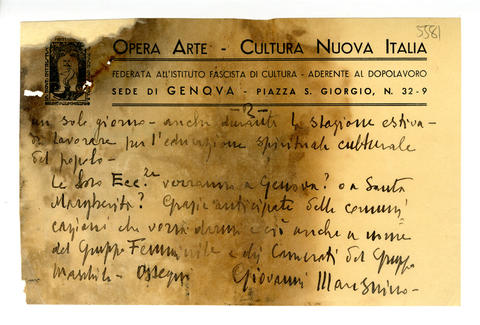 5581
OPERA ARTE - CULTURA NUOVA ITALIA
FEDERATA ALL'ISTITUTO FASCISTA DI CULTURA - ADERENTE AL DOPOLAVORO
SEDE DI GENOVA - PIAZZA S. GIORGIO, N. 32-9
-2-
un solo giorno - anche durante la stagione estiva -
di lavorare per l'educazione spirituale culturale
del popolo -
Le Loro Ecc.ze verranno a Genova? o a Santa
Margherita? Grazie anticipate delle comuni
cazioni che vorrà darmi e ciò anche a nome
del Gruppo Femminile e dei Camerati del Gruppo
Maschile - Ossequi Giovanni